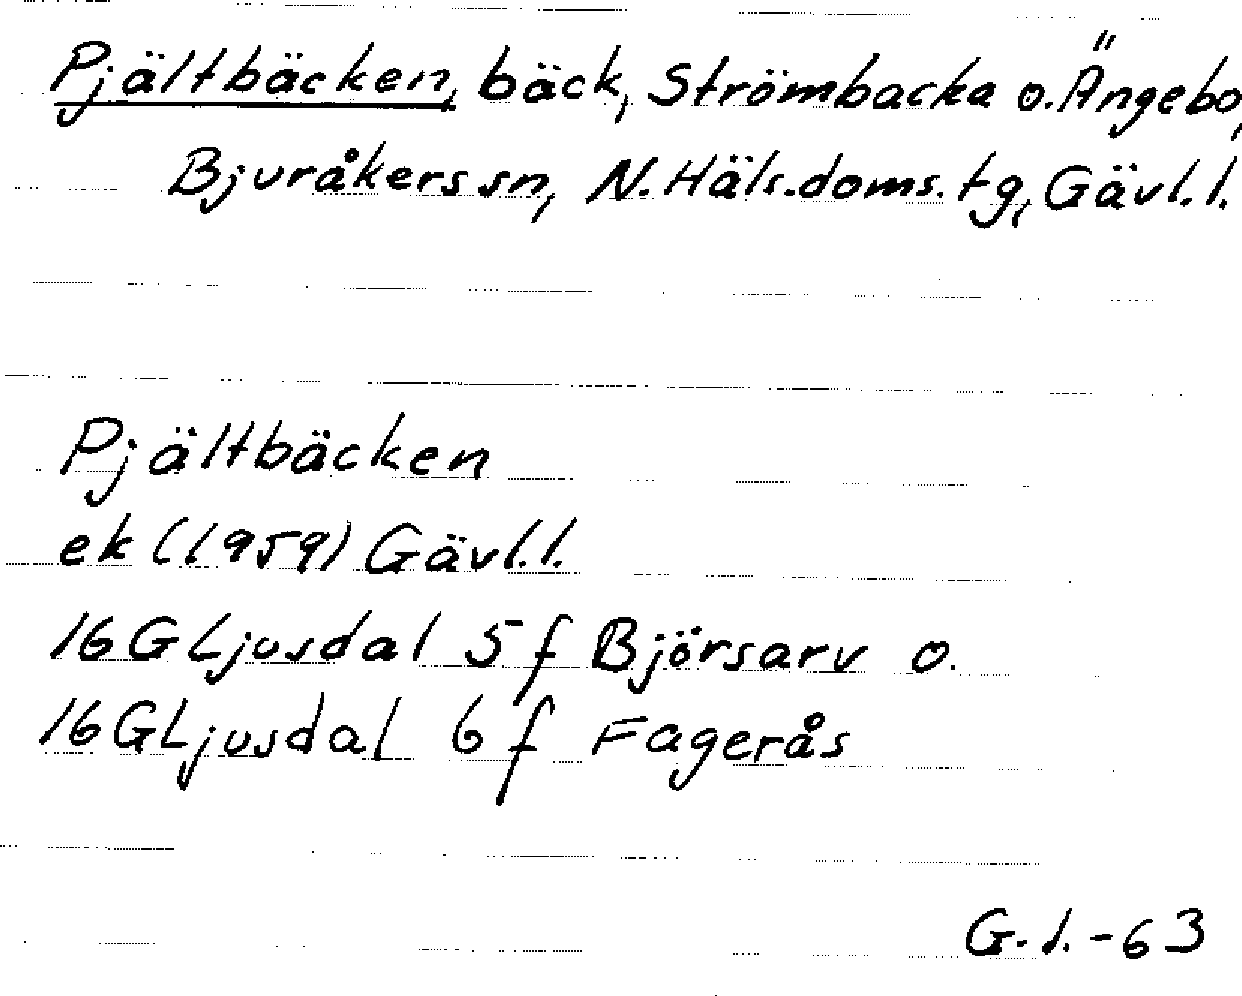 Pjältbäcken, bäck, Strömbacka o. Ängebo,
Bjuråkers sn, N. Häls.doms. tg, Gävl.l.
Pjältbäcken
ek (1959) Gävl.l.
16G Ljusdal 5 f Björsarv o.
16G Ljusdal 6 f Fagerås
G.l.-63